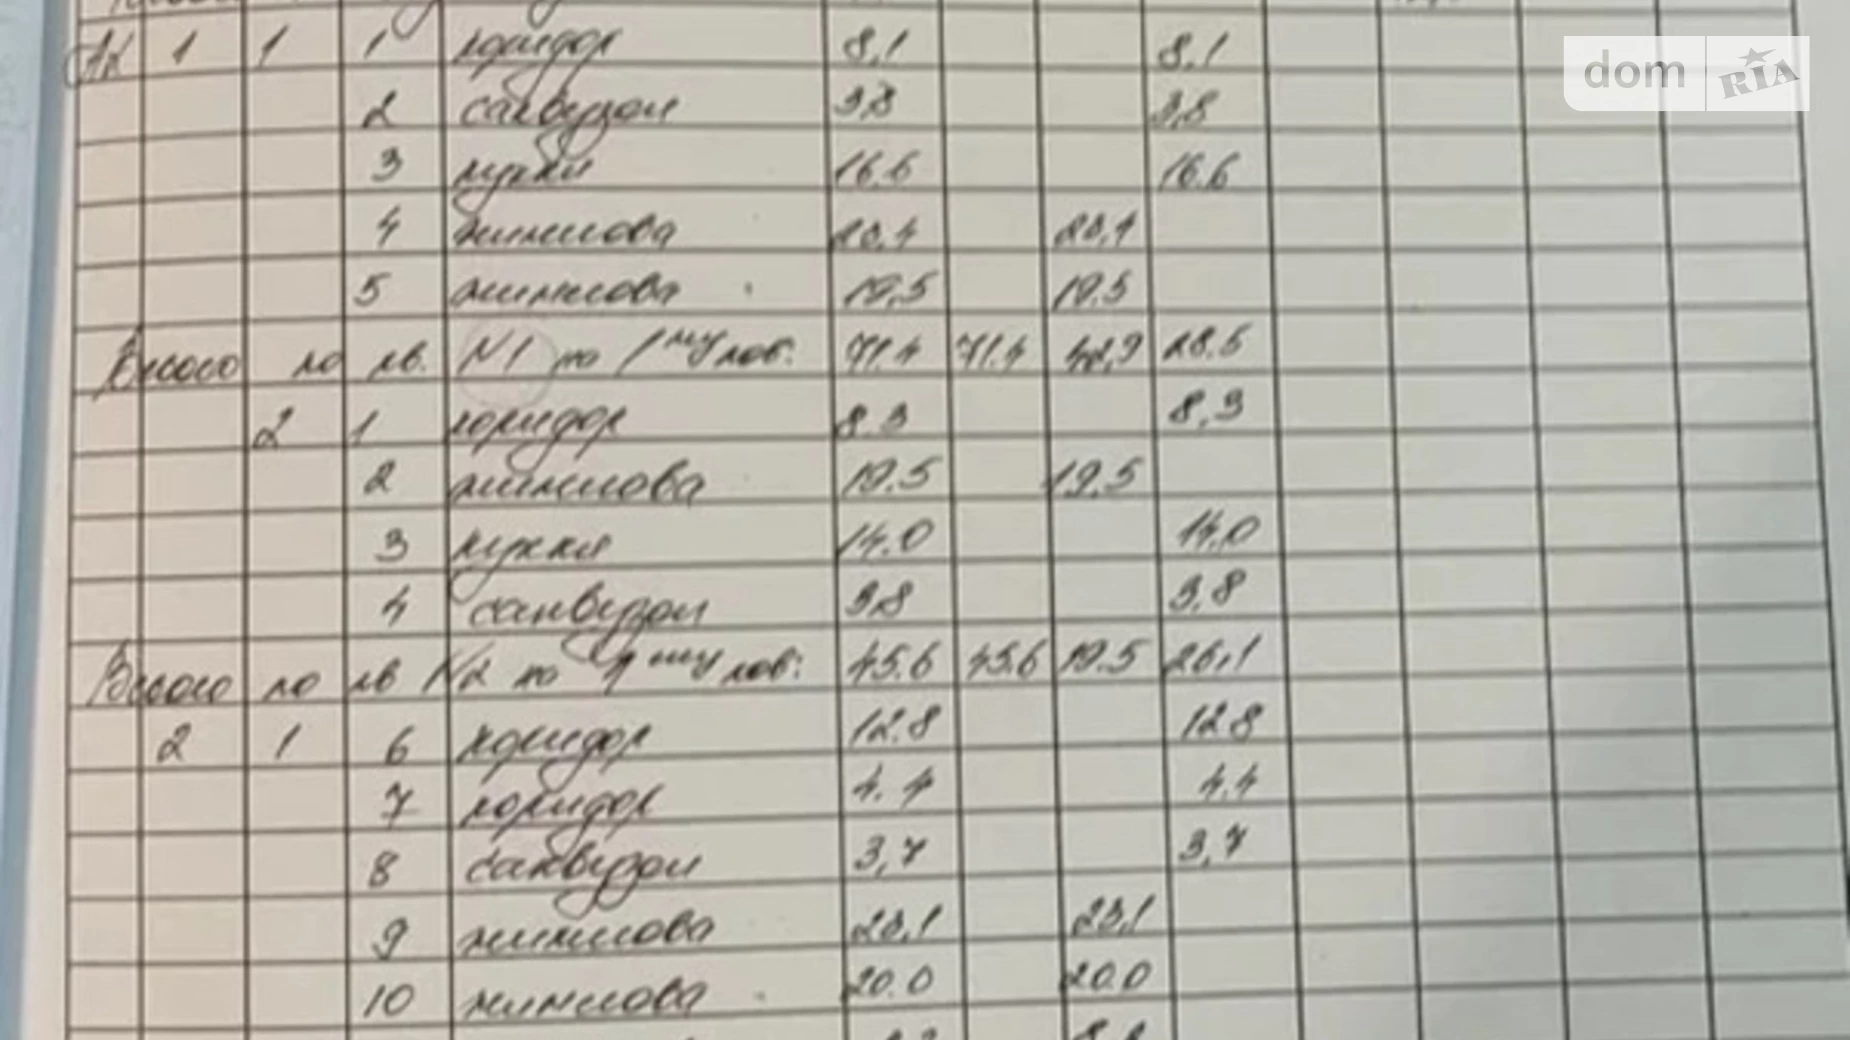 dom RIA
А2 1 1 1 коридор 8,1 8,1
2 санвузол 3,8 3,8
3 кухня 16.6 16.6
4 житлова 23,4 23,4
5 житлова 19,5 19,5
Всього по кв. №1 по 1му пов: 71.4 71.4 42,9 28.5
2 1 коридор 8.3 8,3
2 житлова 19.5 19.5
3 кухня 14.0 14,0
4 санвузол 3,8 3,8
Всього по кв №2 по 1му пов: 45.6 45.6 19.5 26,1
2 1 6 коридор 12.8 12.8
7 коридор 4.4 4.4
8 санвузол 3,7 3,7
9 житлова 23,1 23,1
10 житлова 20.0 20.0